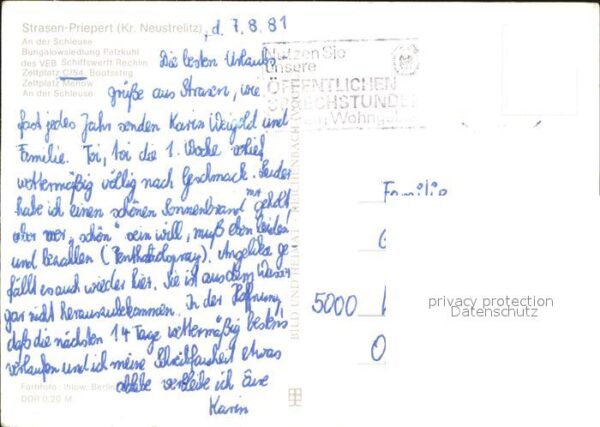 Strasen-Priepert (Kr. Neustrelitz), d. 7.8.81
An der Schleuse
Bungalowsiedlung Pelzkuhl
des VEB Schiffswerft Rechlin
Zeltplatz C/54, Bootssteg,
Zeltplatz Merlow
An der Schleuse
Die besten Urlaubs-
grüße aus Strasen, wie
fast jedes Jahr senden Karin Weigold und
Familie. Toi, toi die 1. Woche verlief
wettermäßig völlig nach Geschmack. Leider
habe ich einen schönen Sonnenbrand mir geholt
aber wer "schön" sein will, muß eben leiden
und bezahlen (Penthatholspray). Angelika ge
fällt es auch wieder hier. Sie ist aus dem Wasser
gar nicht herauszubekommen. In der Hoffnung,
daß die nächsten 14 Tage wettermäßig bestens
verlaufen und ich meine Schreibfaulheit etwas
abhebe verbleibe ich Eure
Karin
Farbfoto: Ihlow, Berlin
DDR 0,20 M
Nutzen Sie
unsere
ÖFFENTLICHEN
SPRECHSTUNDEN
BILD UND HEIMAT REICHENBACH
Familie
G
5000
O
privacy protection
Datenschutz